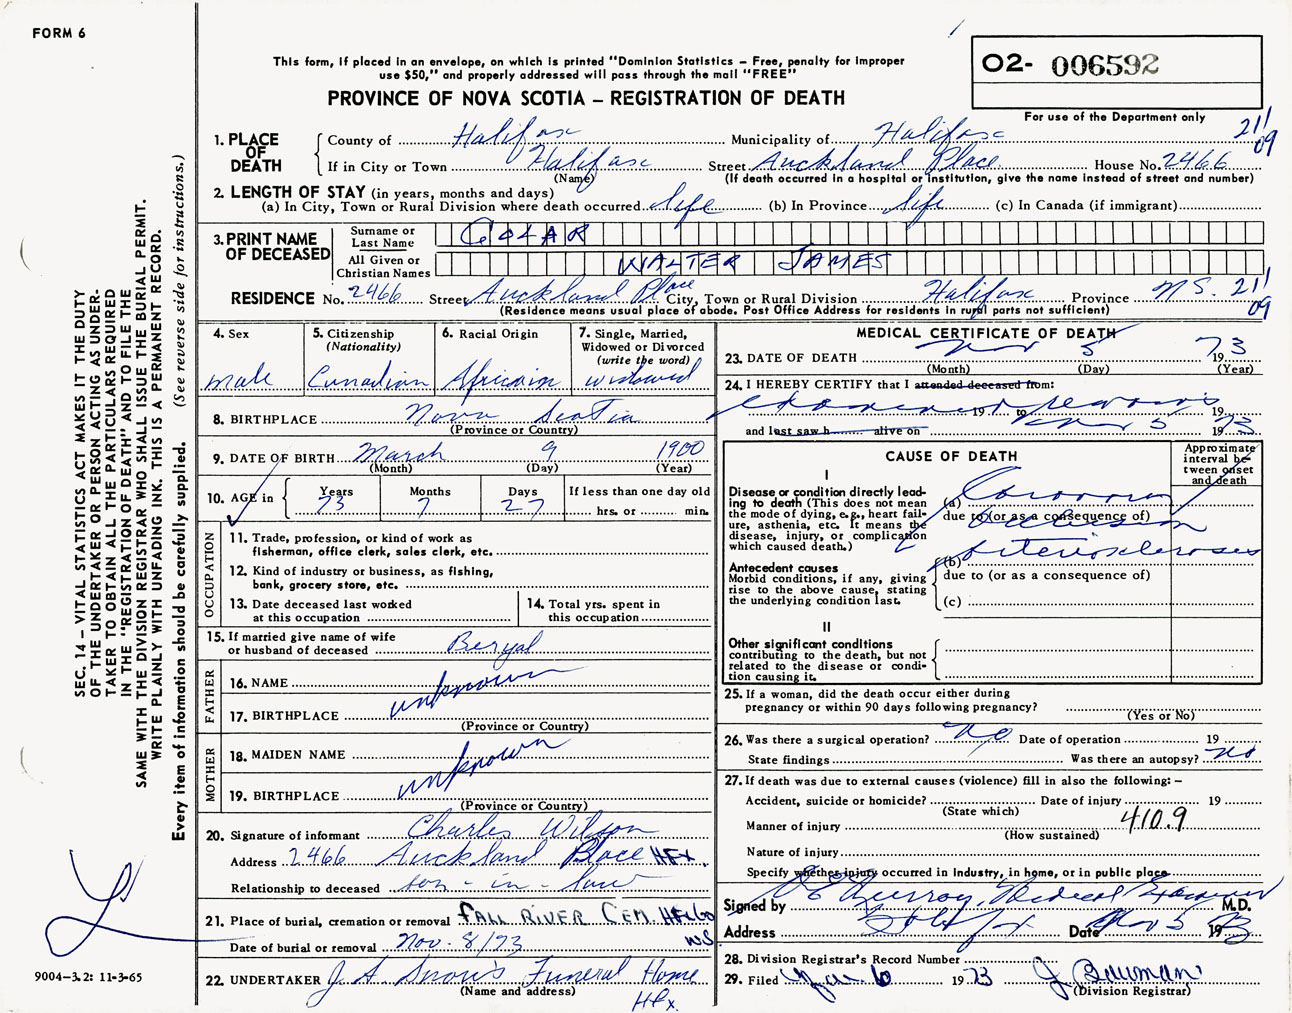 FORM 6
This form, if placed in an envelope, on which is printed "Dominion Statistics – Free, penalty for improper
use $50," and properly addressed will pass through the mail "FREE"
O2- 006592
For use of the Department only
PROVINCE OF NOVA SCOTIA – REGISTRATION OF DEATH
21/
09
1. PLACE OF DEATH
County of Halifax Municipality of Halifax
If in City or Town Halifax Street Auckland Place House No. 2466
(Name) (If death occurred in a hospital or institution, give the name instead of street and number)
2. LENGTH OF STAY (in years, months and days)
(a) In City, Town or Rural Division where death occurred life (b) In Province life (c) In Canada (if immigrant)
3. PRINT NAME OF DECEASED
Surname or Last Name COLAR
All Given or Christian Names WALTER JAMES
RESIDENCE No. 2466 Street Auckland Place City, Town or Rural Division Halifax Province N.S. 21/
09
(Residence means usual place of abode. Post Office Address for residents in rural parts not sufficient)
4. Sex
male
5. Citizenship
(Nationality)
Canadian
6. Racial Origin
Africain
7. Single, Married,
Widowed or Divorced
(write the word)
widowed
8. BIRTHPLACE Nova Scotia
(Province or Country)
9. DATE OF BIRTH March 9 1900
(Month) (Day) (Year)
10. AGE in
Years Months Days If less than one day old
73 7 27 hrs. or min.
OCCUPATION
11. Trade, profession, or kind of work as
fisherman, office clerk, sales clerk, etc.
12. Kind of industry or business, as fishing,
bank, grocery store, etc.
13. Date deceased last worked
at this occupation
14. Total yrs. spent in
this occupation
15. If married give name of wife
or husband of deceased Beryal
FATHER
16. NAME
unknown
17. BIRTHPLACE
(Province or Country)
MOTHER
18. MAIDEN NAME
unknown
19. BIRTHPLACE
(Province or Country)
20. Signature of informant Charles Wilson
Address 2466 Auckland Place HFX.
Relationship to deceased son-in-law
21. Place of burial, cremation or removal FALL RIVER CEM. HFX Co
NS
Date of burial or removal Nov. 8/73
22. UNDERTAKER J. A. Snow's Funeral Home
(Name and address)
Hfx.
MEDICAL CERTIFICATE OF DEATH
23. DATE OF DEATH Nov 5 1973
(Month) (Day) (Year)
24. I HEREBY CERTIFY that I attended deceased from:
examined remains
19 to 19
and last saw h alive on Nov 5 1973
CAUSE OF DEATH
Approximate
interval be-
tween onset
and death
I
Disease or condition directly lead-
ing to death (This does not mean
the mode of dying, e.g., heart fail-
ure, asthenia, etc. It means the
disease, injury, or complication
which caused death.)
(a) Coronary
due to (or as a consequence of)
occlusion
Antecedent causes
Morbid conditions, if any, giving
rise to the above cause, stating
the underlying condition last.
(b) Arteriosclerosis
due to (or as a consequence of)
(c)
II
Other significant conditions
contributing to the death, but not
related to the disease or condi-
tion causing it.
25. If a woman, did the death occur either during
pregnancy or within 90 days following pregnancy?
(Yes or No)
26. Was there a surgical operation? No Date of operation 19
State findings Was there an autopsy? no
27. If death was due to external causes (violence) fill in also the following: –
Accident, suicide or homicide? Date of injury 19
(State which)
Manner of injury 410.9
(How sustained)
Nature of injury
Specify whether injury occurred in industry, in home, or in public place
Signed by Murray, Medical Examiner M.D.
Address Halifax Date Nov 5 1973
28. Division Registrar's Record Number
29. Filed Nov 6 1973 J. Bauman
(Division Registrar)
SEC. 14 – VITAL STATISTICS ACT MAKES IT THE DUTY
OF THE UNDERTAKER OR PERSON ACTING AS UNDER-
TAKER TO OBTAIN ALL THE PARTICULARS REQUIRED
IN THE "REGISTRATION OF DEATH" AND TO FILE THE
SAME WITH THE DIVISION REGISTRAR WHO SHALL ISSUE THE BURIAL PERMIT.
WRITE PLAINLY WITH UNFADING INK. THIS IS A PERMANENT RECORD.
Every item of information should be carefully supplied. (See reverse side for instructions.)
9004-3.2: 11-3-65